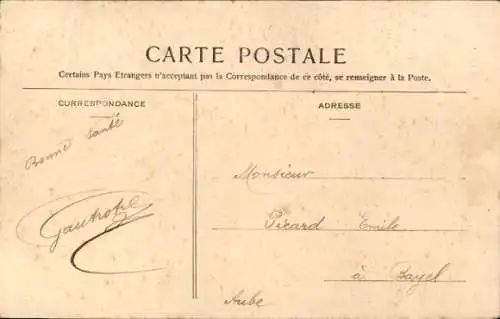 CARTE POSTALE
Certains Pays Etrangers n'acceptant pas la Correspondance de ce côté, se renseigner à la Poste.
CORRESPONDANCE
Bonne santé
ADRESSE
Monsieur
Picard Emile
à Bayel
Aube